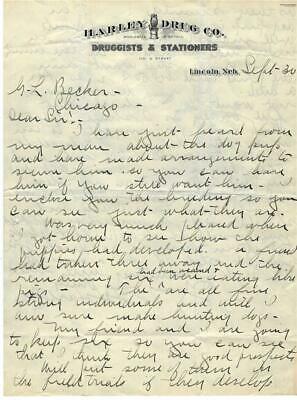 HARLEY DRUG CO.
DRUGGISTS & STATIONERS
Lincoln, Neb. Sept 30
G. L. Becker –
Chicago –
Dear Sir: –
I have just heard from
my man about the dog pups
and have made arrangements to
secure him so you can have
him if you still want him –
enclose you the breeding so you
can see just what they are.
Was very much pleased when
I got home to see how the
puppies had developed – a friend
had taken three away and the
remaining six had been weaned & were eating like
pigs. The are all fine
strong individuals and will I
am sure make hunting dogs –
My friend and I are going
to keep six so you can see
that I think they are good prospects
Will put some of them in
the field trials if they develop